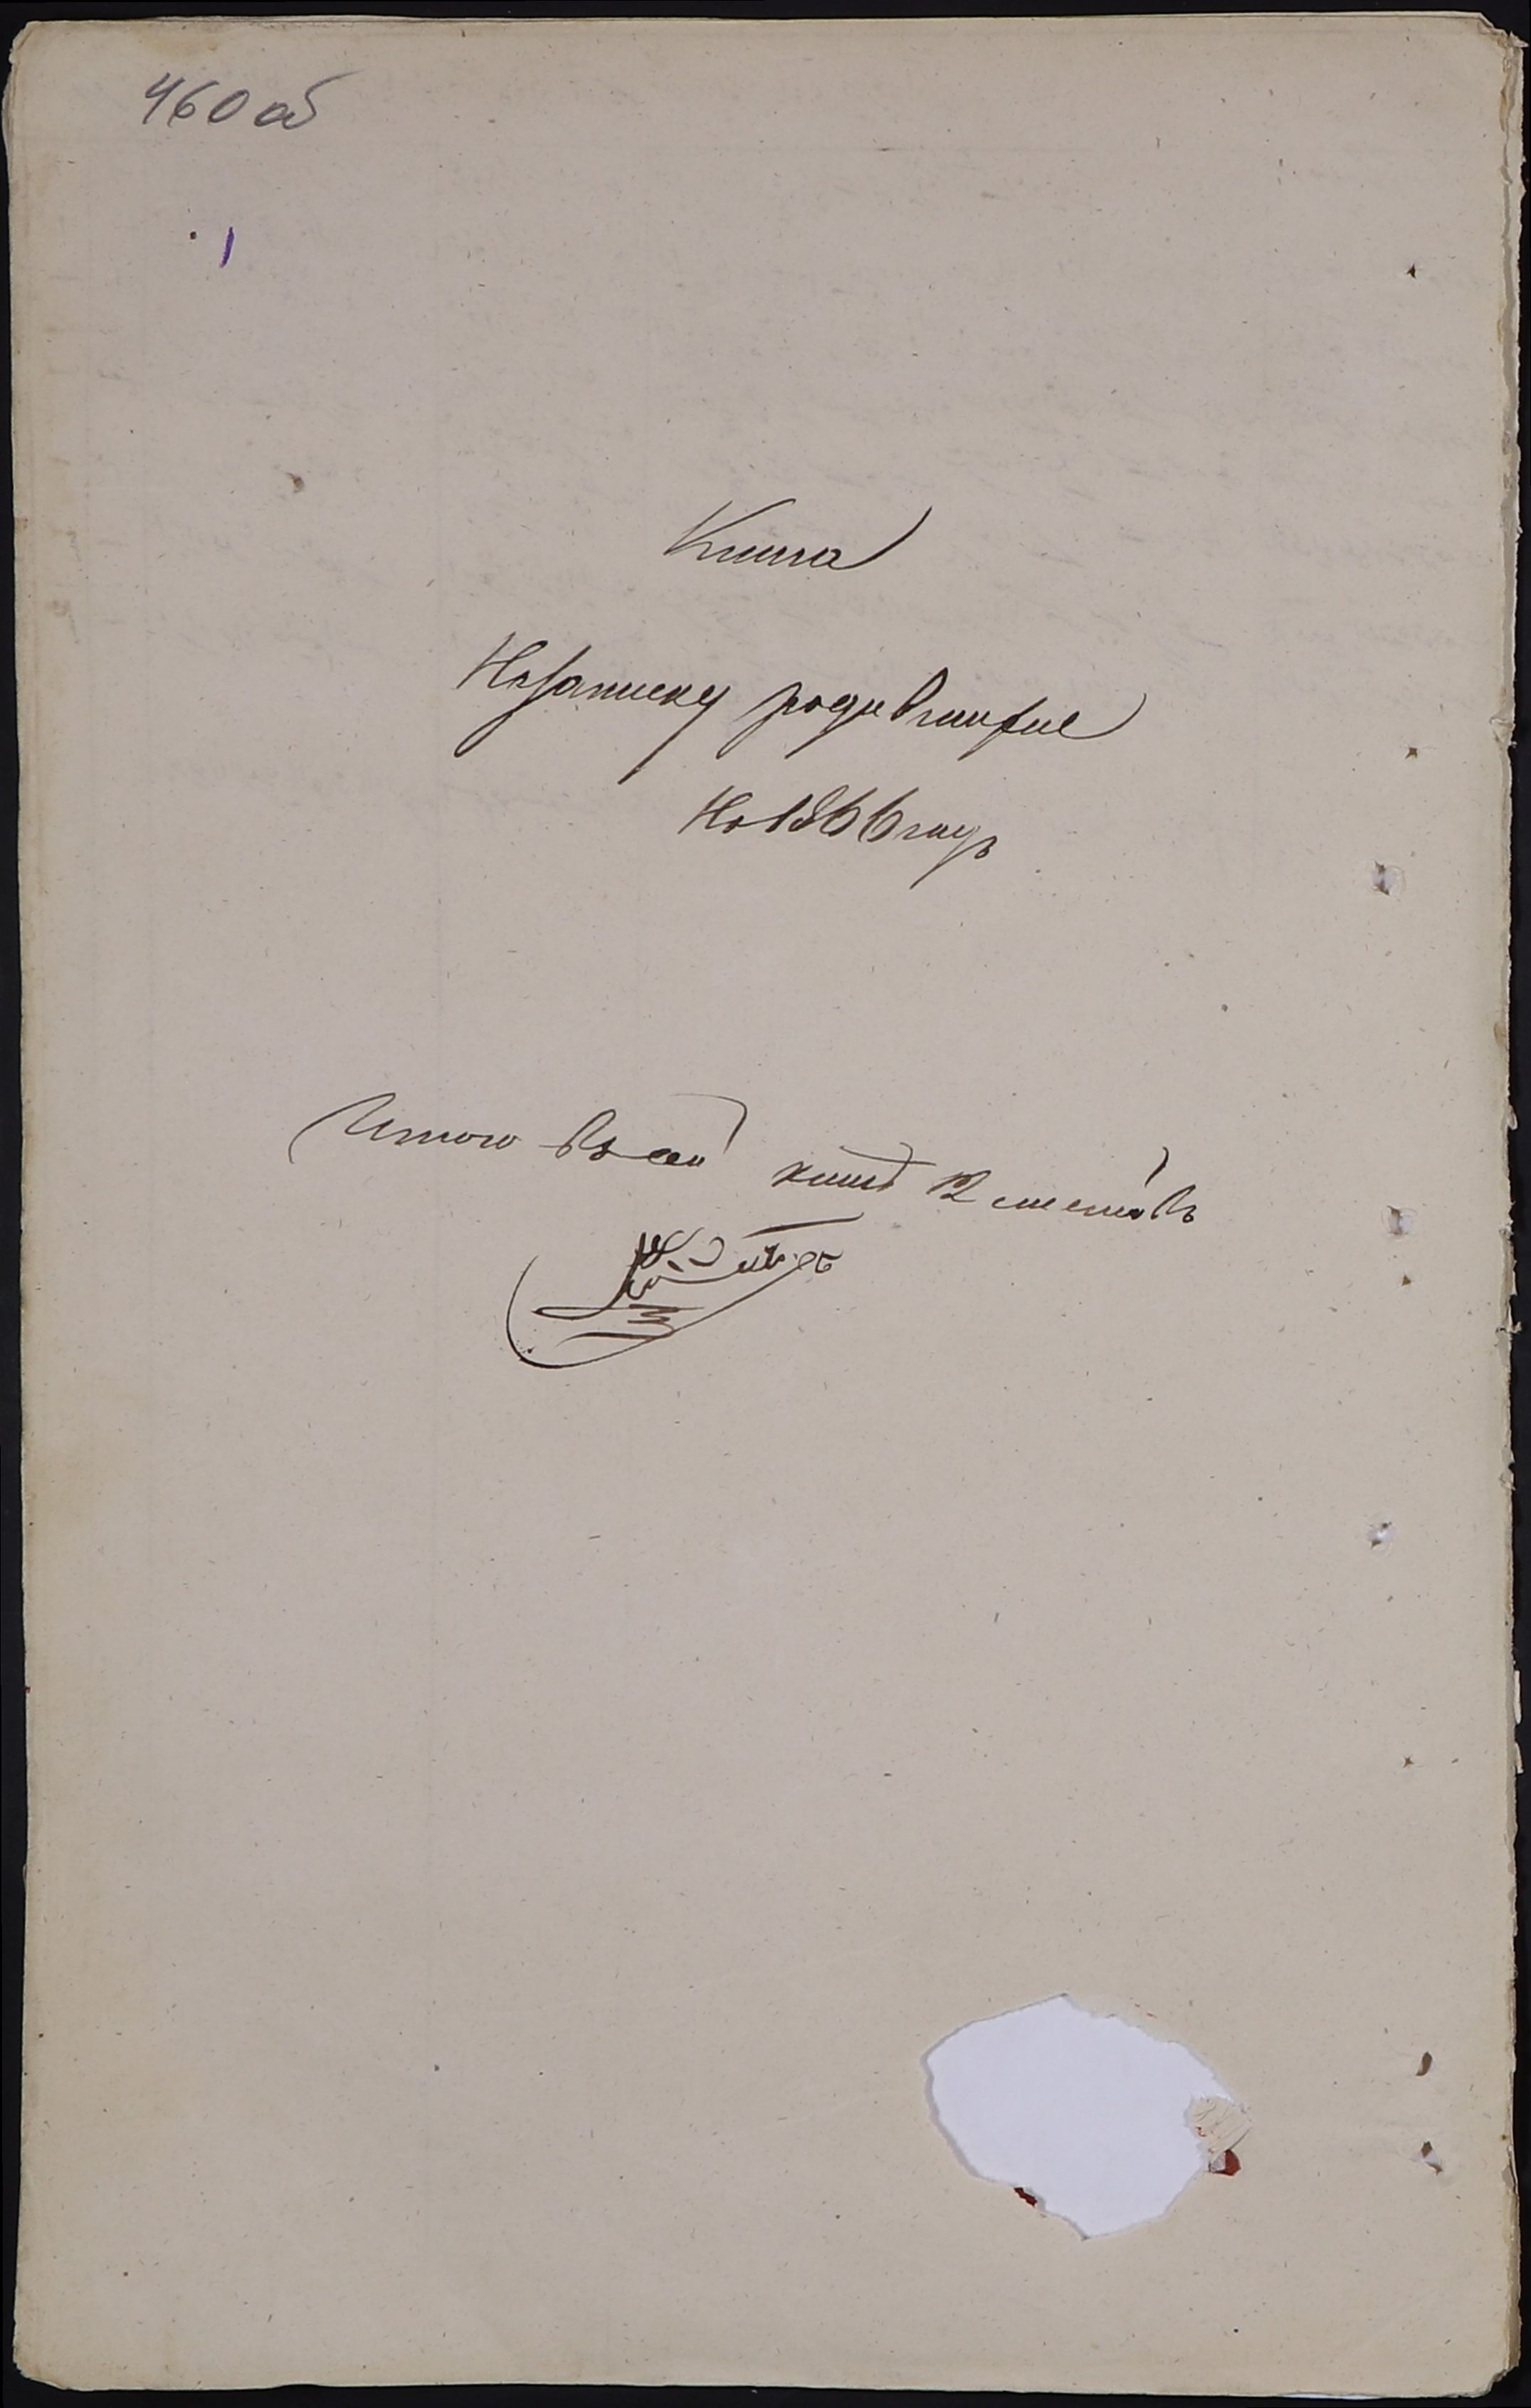 460 об
1
Книга
На записку родившихся
На 1866 годъ
Итого въ сей книгѣ 12 листовъ